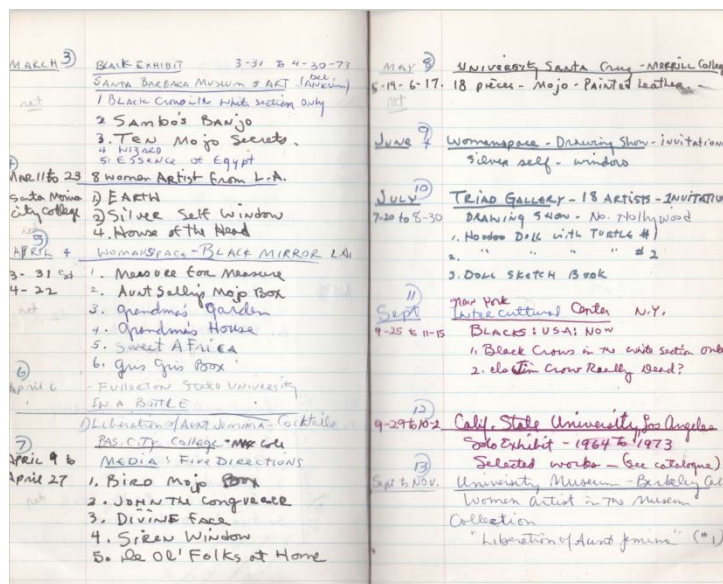 MARCH 3 BLACK EXHIBIT 3-31 to 4-30-73
SANTA BARBARA MUSEUM of ART (see ANKRUM)
ret 1 BLACK Crows in the white section only
2 Sambo's Banjo
3. TEN Mojo Secrets.
4 WIZARD
5. ESSENCE of Egypt
4 MAR 11 to 23 8 women Artist from L.A.
Santa Monica 1) EARTH
City College 2) Silver Self Window
4. House of the Head
5 APRIL 4 WOMANSPACE - BLACK MIRROR L.A.
3-31 1. Measure for Measure
4-22 2. Aunt Sally's Mojo Box
3. grandma's Garden
4. Grandma's House
5. Sweet AFRICA
6. Gris Gris Box
6
April 6 - FULLERTON STATE UNIVERSITY
IN A BOTTLE
1) Liberation of Aunt Jemima - Cocktails
7 PAS. CITY College
APRIL 9 to MEDIA: FIVE DIRECTIONS
April 27 1. BIRD Mojo Box
2. JOHN The Conqueror
3. DIVINE Face
4. Siren Window
5. De Ol' Folks at Home
MAY 8 UNIVERSITY Santa Cruz - MERRILL College
5-19-6-17. 18 pieces - Mojo - Painted Leather
ret
9
JUNE 7 Womanspace - Drawing Show - invitational
Silver self - window
10
JULY TRIAD GALLERY - 18 ARTISTS - INVITATION
7-20 to 8-30 DRAWING SHOW - No. Hollywood
1. Hoodoo Doll with TURTLE #1
2. " " " " #2
3. DOLL SKETCH BOOK
11 New York
Sept Inter cultural Center N.Y.
9-25 to 11-15 BLACKS: USA: NOW
1. Black Crows in the white section only
2. is Jim Crow Really Dead?
12
9-29 to 10-2 Calif. State University, Los Angeles
Solo Exhibit - 1964 to 1973
Selected works - (see catalogue)
13
Sept to Nov. University Museum - Berkeley Cal
Women Artist in the Museum
Collection
"Liberation of Aunt Jemima" (#1)